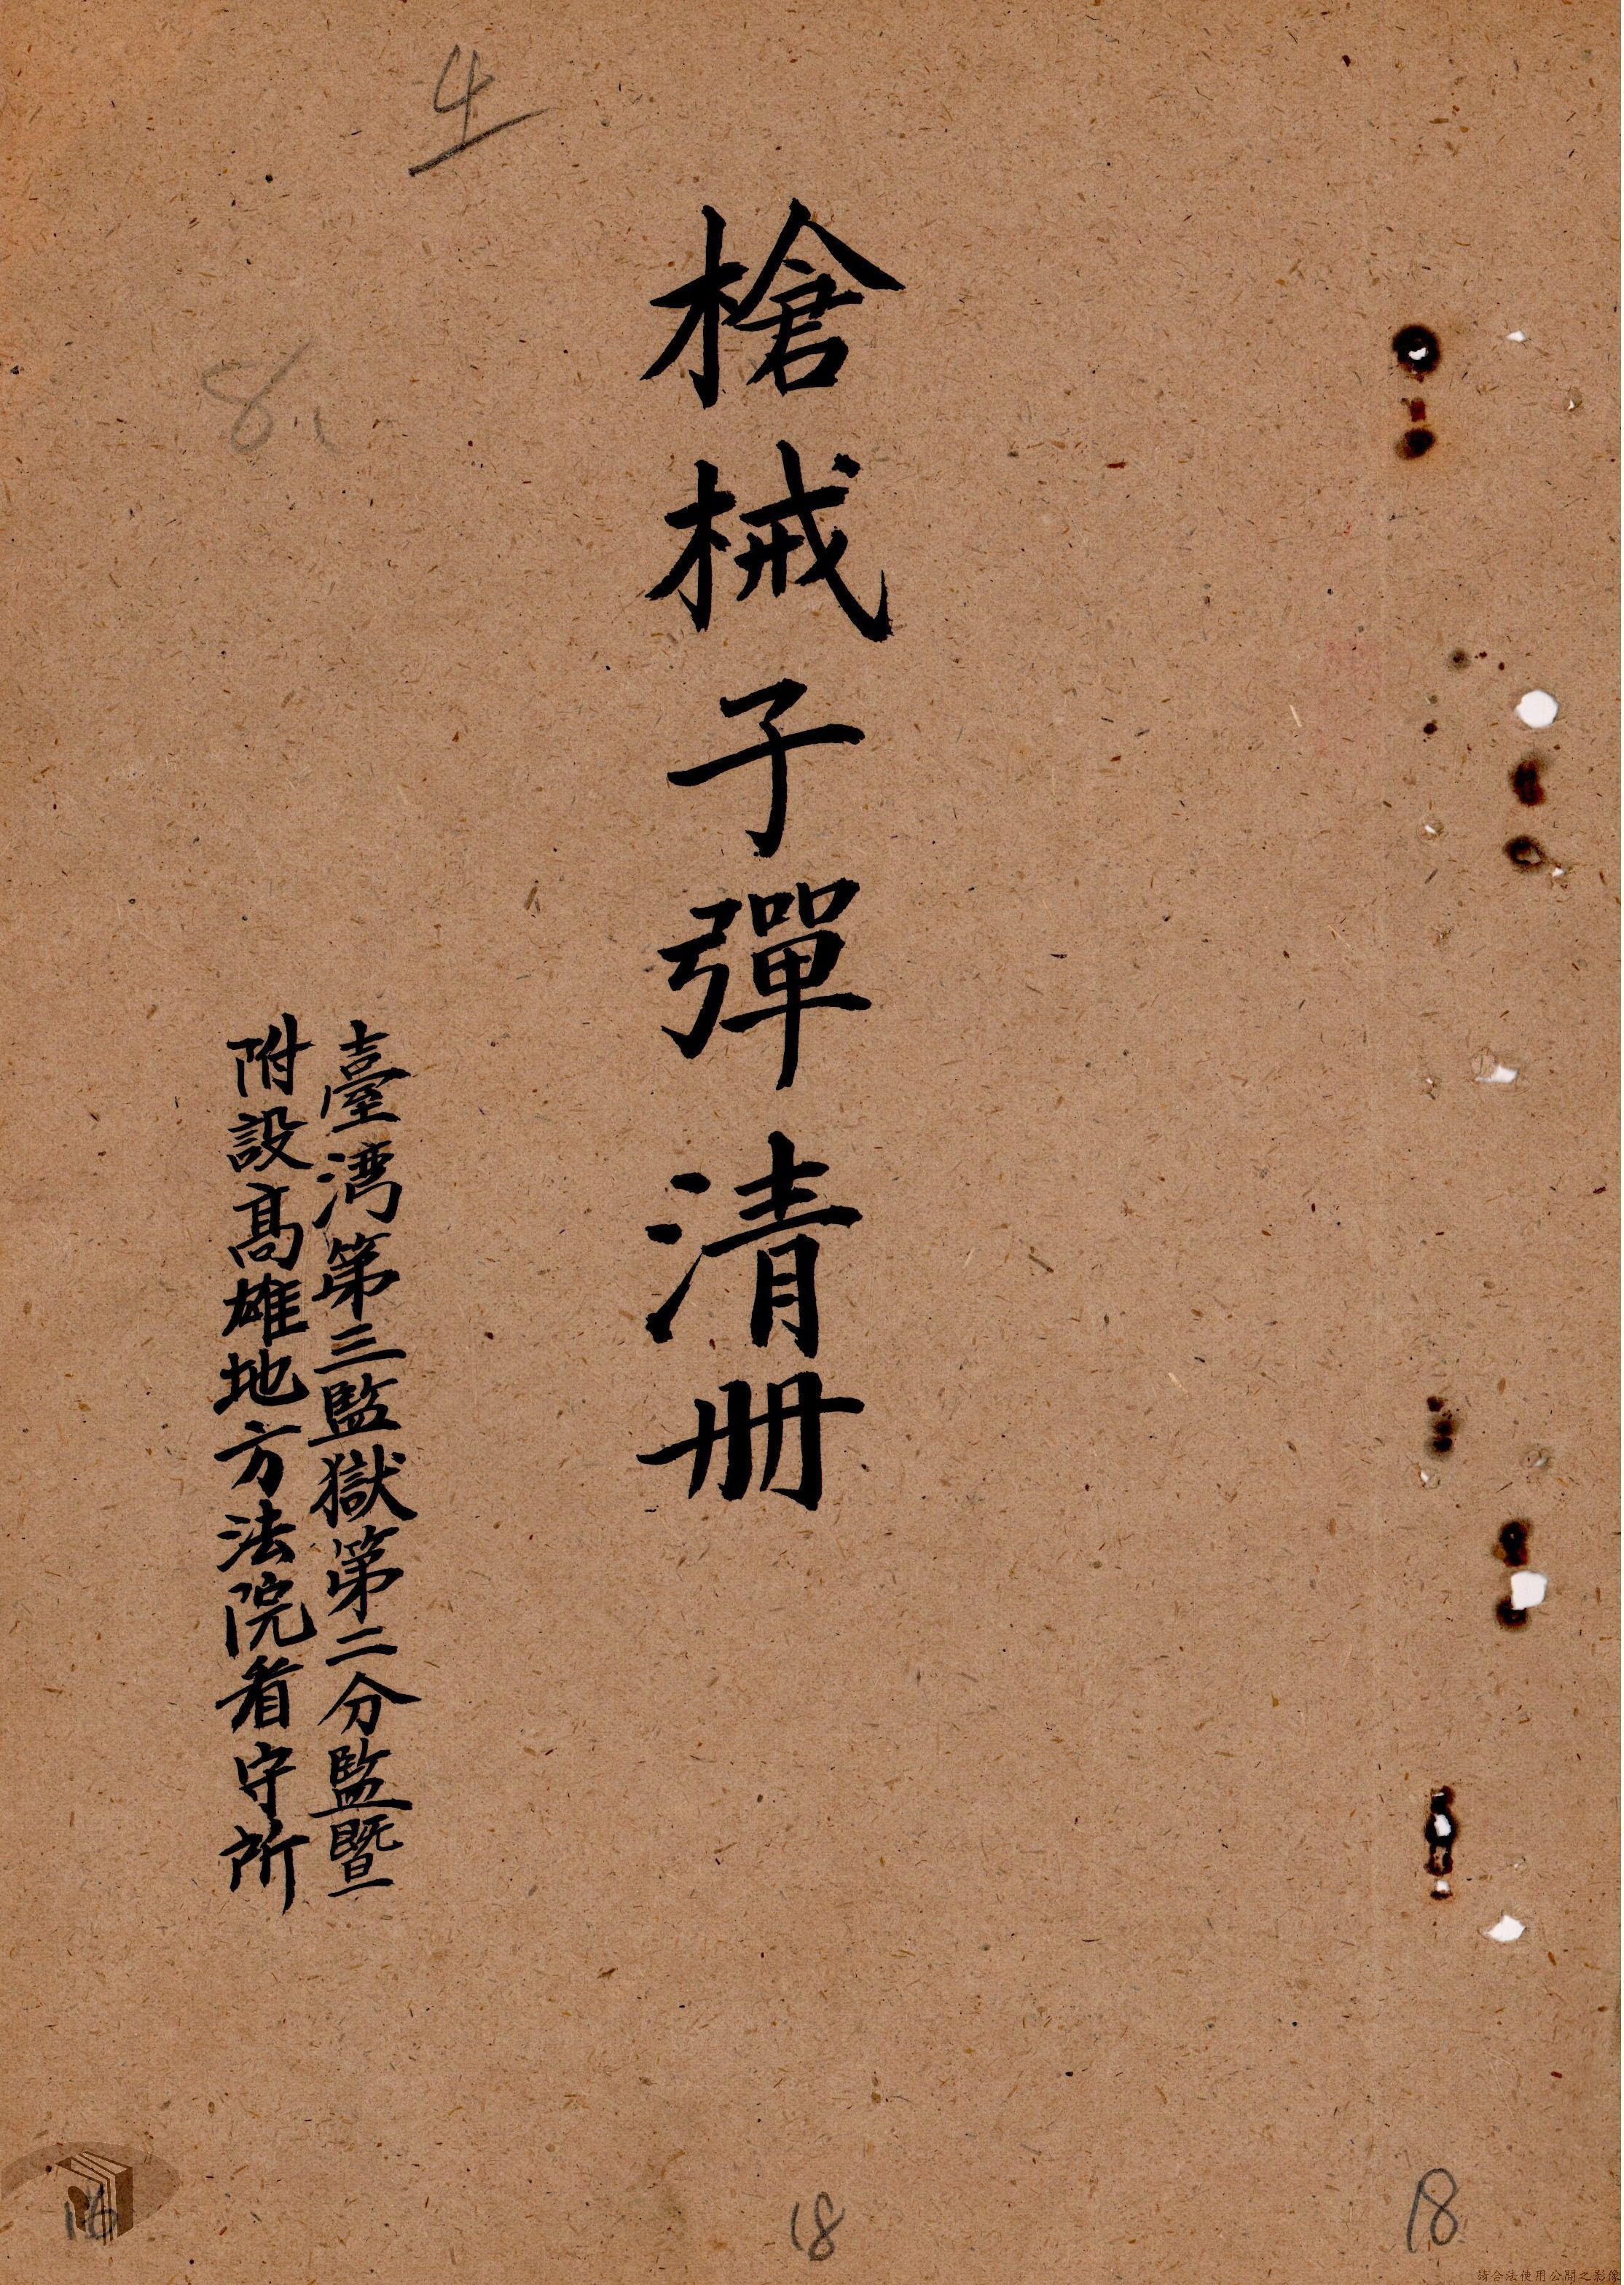 槍械子彈清册
臺湾第三監獄第二分監暨
附設高雄地方法院看守所
8
16
18
18
請合法使用公開之影像